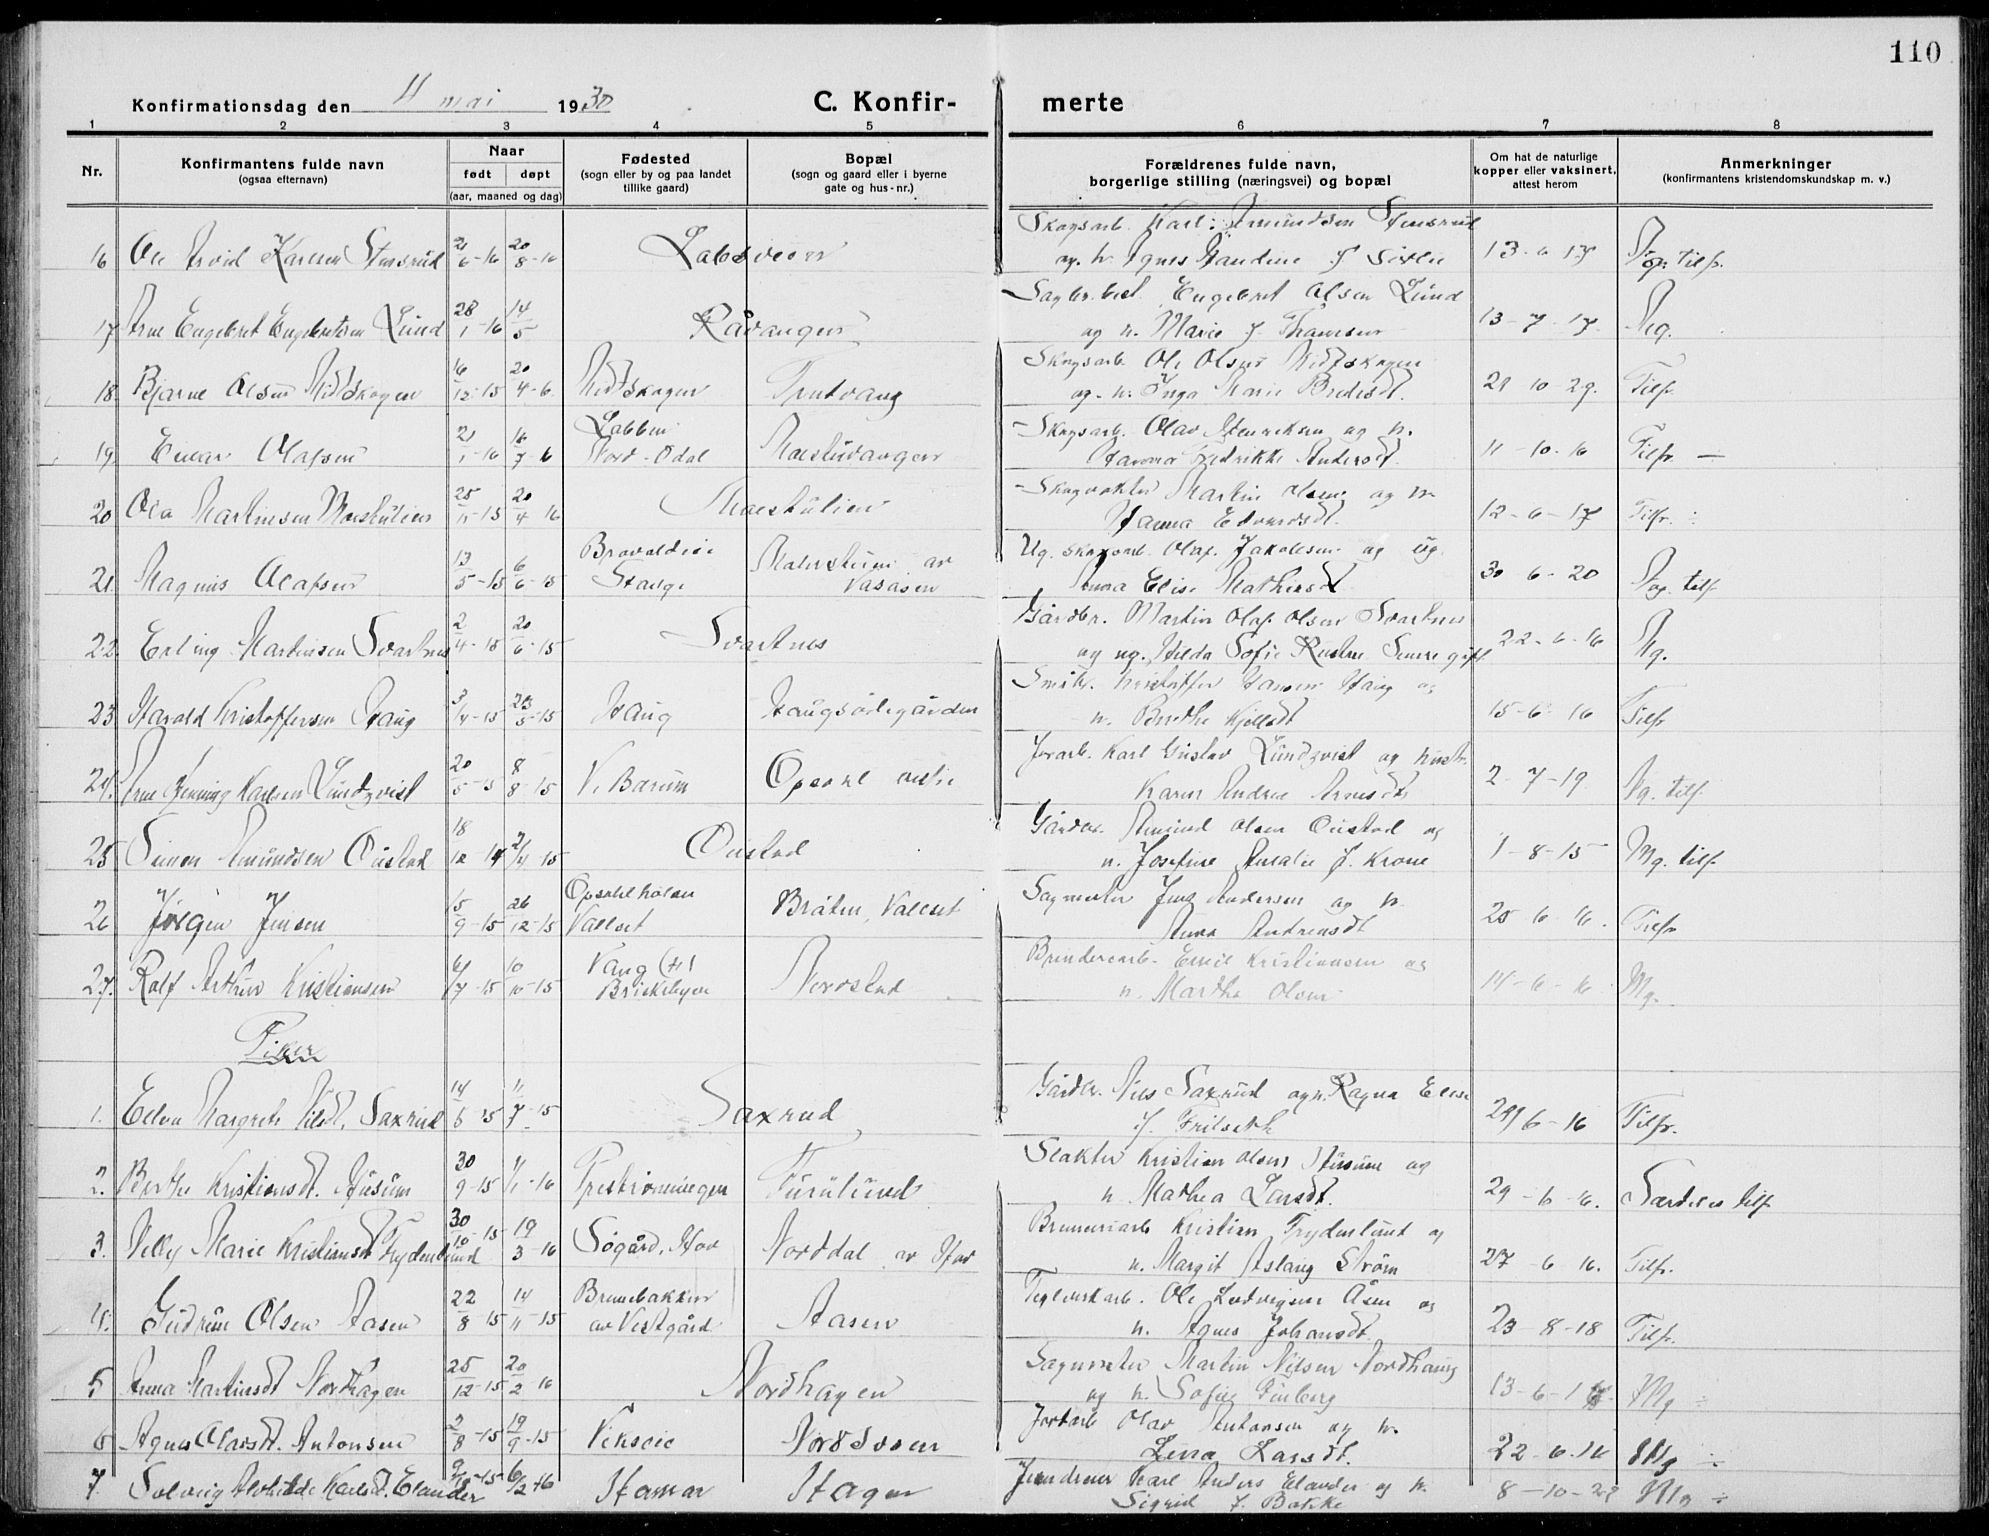 110
Konfirmationsdag den 11 mai 1930
C. Konfir- merte
1 2 3 4 5 6 7 8
Nr.
Konfirmantens fulde navn
(ogsaa efternavn)
Naar
født døpt
(aar, maaned og dag)
Fødested
(sogn eller by og paa landet
tillike gaard)
Bopæl
(sogn og gaard eller i byerne
gate og hus-nr.)
Forældrenes fulde navn,
borgerlige stilling (næringsvei) og bopæl
Om hat de naturlige
kopper eller vaksinert,
attest herom
Anmerkninger
(konfirmantens kristendomskundskap m. v.)
Skogsarb. Karl Amundsen Stensrud
16 Ole Arvid Karlsen Stensrud 21/6-16 20/8-16 Labsveen og h. Agnes 13-6-17 tilfr.
Engebret Olsen Lund
17 Arne Engebret Engebretsen Lund 28/1-16 14/5 Råvangen og h. Marie f. 13-7-17 Mg.
Skogsarb. Ole Olsen Midtskogen
18 Bjarne Olsen Midtskogen 16/12-15 20/4-6 Midtskogen Tentvang og h. Inga Marie 29-10-29. Tilfr.
Labben Skogsarb. Olav Henriksen og h.
19 Einar Olafsen 21/1-16 16/7-16 Nord-Odal Fredrikke 11-10-16 Tilfr. —
Skogvokter Martin Olsen og h.
20 Ola Martinsen Moestulien 25/11-15 20/4-16 Moestulien Hanna Edvardsdt. 12-6-17 Tilfr. ÷
Ug. skogsarb. Olaf Jakobsen og ug.
21 Magnus Olafsen 13/5-15 6/6-15 Stange av Vasåsen Anna Elise Mathiesdt. 30-6-20 tilfr
Gårdbr. Martin Olaf Olsen Svartnes
22 Erling Martinsen Svartnes 2/4-15 20/6-15 Svartnes og ug. Hilda Sofie 22-6-16 Mg.
Småbr. Kristoffer Hansen Haug og
23 Harald Kristoffersen Haug 3/4-15 23/5-15 Haug Haugsødegården h. Berthe 15-6-16 Tilfr
Jorarb. Karl Gustav Lundqvist og hustr.
24. Arne Henning Karlsen Lundqvist 20/5-15 8/8-15 V. Bærum Opsahl østre Karen Andrea 2-7-19 Mg. tilfr
Gårdbr. Amund Olsen Oustad og
25 Simen Amundsen Oustad 18/12-14 2/4-15 Oustad h. Josefine Amalie f. Krone 1-8-15 Mg. tilfr
Sagmester Jens Andersen og h.
26 Jørgen Jensen 15/9-15 26/12-15 Vallset Bråten, Vallset Anna Andreasdt 25-6-16. Tilfr
Vang (H) Emil Kristiansen og
27. Rolf Arthur Kristiansen 6/7-15 10/10-15 Briskebyen Nordstad h. Martha Olsen 14-6-16 Mg.
Piker
Gårdbr. Nils Saxrud og h. Ragna Elise
1. Edva Margrete Nilsdt. Saxrud 14/5-15 11/7-15 Saxrud f. Frilseth 29/6-16 Tilfr.
Slakter Kristian Olsen Husum og
2. Berthe Kristiansdt. Husum 30/9-15 1/1-16 Furulund h. Mathea Larsdt. 29-6-16. Særdeles tilfr
Kristian Frydenlund og
3. Nelly Marie Kristiansdt Frydenlund 30/10-15 19/3-16 Søgård, Hov Norddal av Hov h. Margit Aslaug Strøm 27-6-16. Tilfr.
Brennebakken Teglverksarb. Ole Ludvigsen Åsen og
4. Gudrun Olsen Aasen 22/8-15 14/11-15 av Vestgård Aasen h. Agnes Johansdt. 23-8-18 Tilfr.
Sagmester Martin Nilsen Nordhaug
5 Anna Martinsdt Nordhagen 25/12-15 20/2-16 Nordhagen og h. Sofie 13-6-1 Mg ÷
Jordarb Olav Antonsen og h.
6 Agnes Olavsdt. Antonsen 2/8-15 19/9-15 Vikseie Nordsveen Lina Larsdt. 22-6-16 Mg ÷
Karl Anders Elander og h.
7. Solveig Alvhilde Karlsdt. Elander 9/12-15 6/2-16 Hamar Hagen Sigrid f. Bakke 8-10-23 Mg ÷